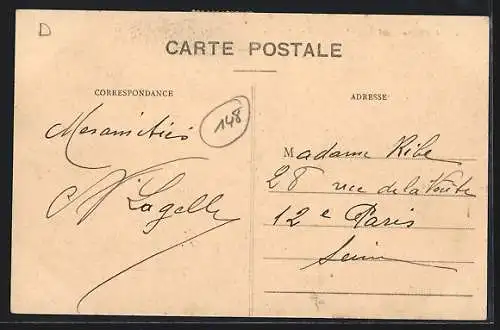 D
CARTE POSTALE
CORRESPONDANCE
148
Mes amitiés
ADRESSE
Madame Ribe
28 rue de la Voûte
12e Paris
Seine